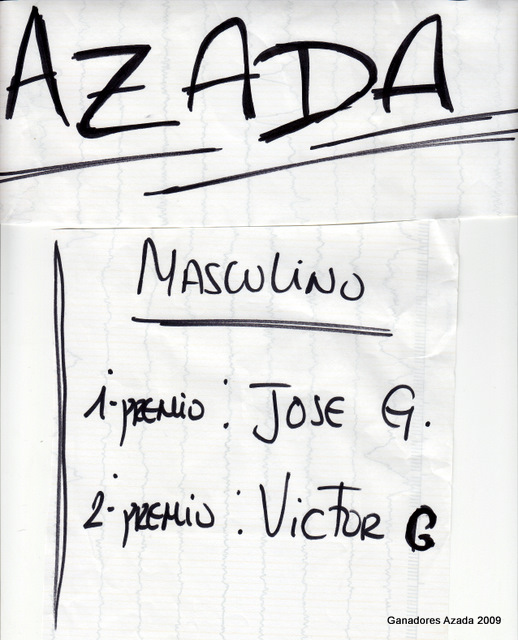 AZADA
MASCULINO
1·PREMIO : JOSE G.
2·PREMIO : VICTOR G
Ganadores Azada 2009